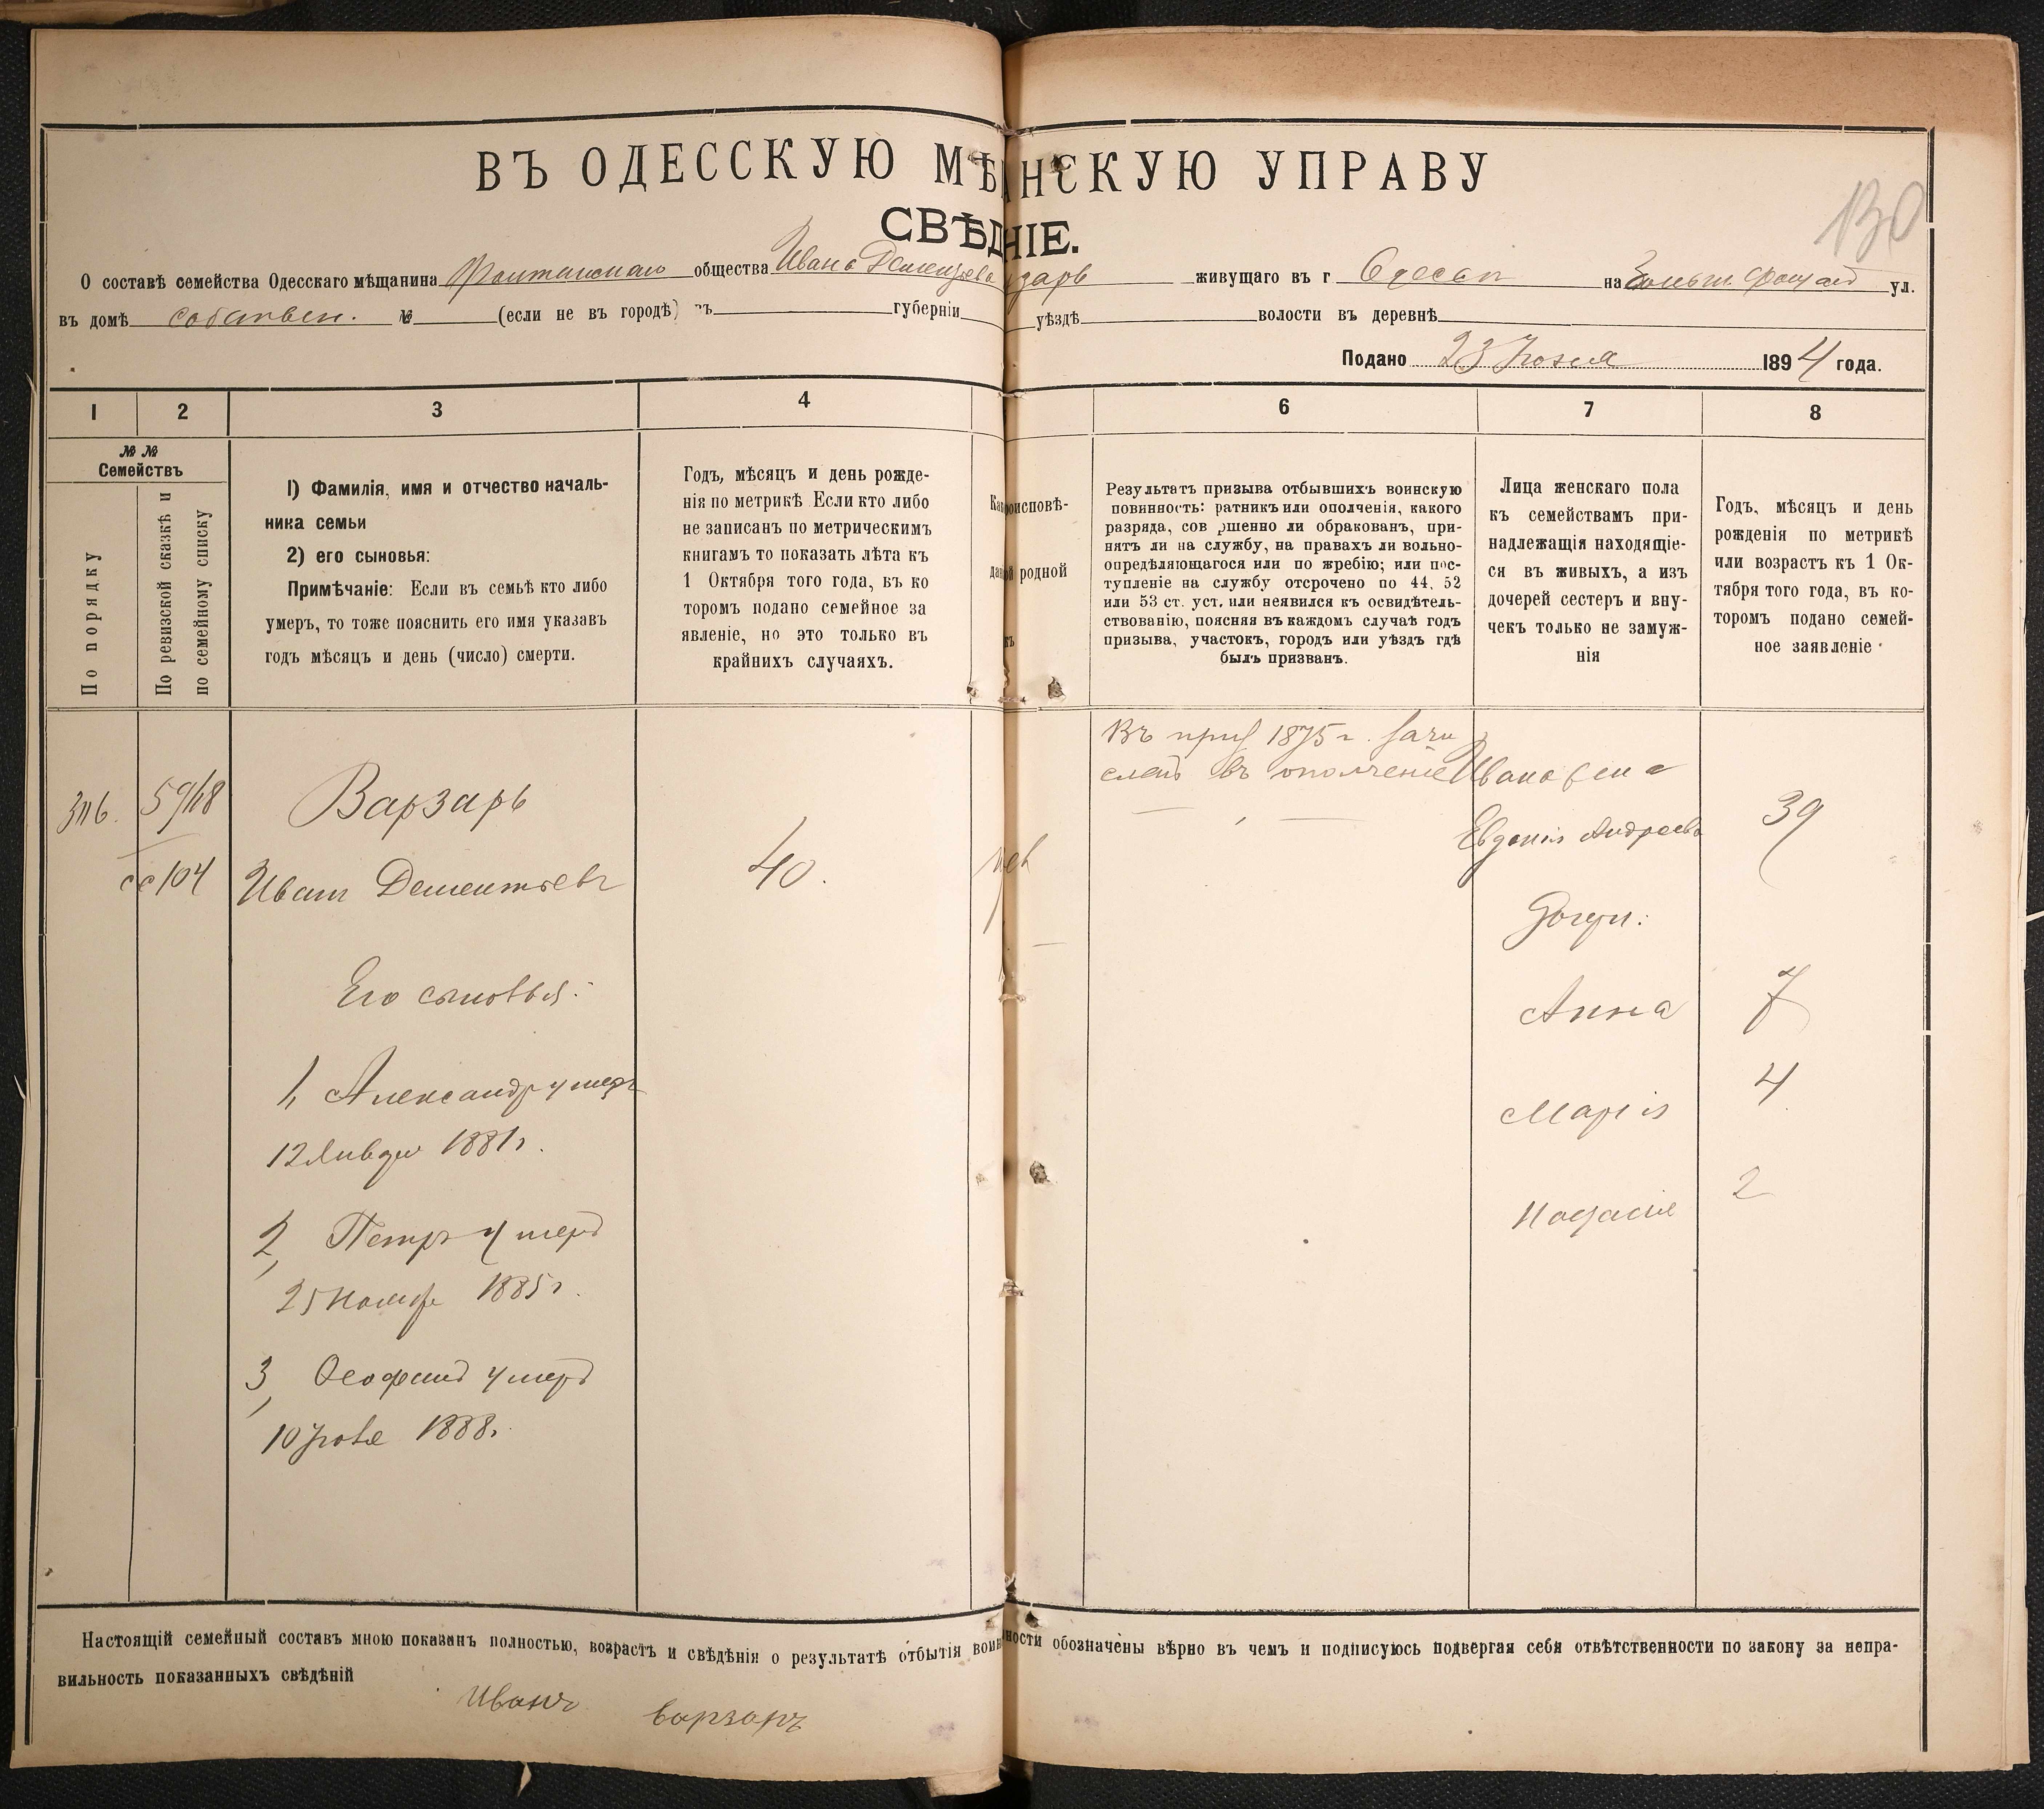 ВЪ ОДЕССКУЮ МѢ НСКУЮ УПРАВУ
СВѢД НІЕ.
130
О составѣ семейства Одесскаго мѣщанина Фонтанскаго общества Ивана Дементьева зарь живущаго въ г. Одессѣ на Большой Фонтан ул.
въ домѣ собствен. № (если не въ городѣ) въ губерніи уѣздѣ волости въ деревнѣ
Подано 23 Іюня 1894 года.
1 2 3 4 6 7 8
№ №
Семействъ
По порядку
По ревизской сказкѣ и
по семейному списку
1) Фамилія, имя и отчество началь-
ника семьи
2) его сыновья:
Примѣчаніе: Если въ семьѣ кто либо
умеръ, то тоже пояснить его имя указавъ
годъ мѣсяцъ и день (число) смерти.
Годъ, мѣсяцъ и день рожде-
нія по метрикѣ Если кто либо
не записанъ по метрическимъ
книгамъ то показать лѣта къ
1 Октября того года, въ ко
торомъ подано семейное за
явленіе, но это только въ
крайнихъ случаяхъ.
Как роисповѣ-
да й родной
къ
Результатъ призыва отбывшихъ воинскую
повинность: ратникъ или ополченія, какого
разряда, сов ршенно ли обракованъ, при-
нятъ ли на службу, на правахъ ли вольно-
опредѣляющагося или по жребію; или пос-
тупленіе на службу отсрочено по 44, 52
или 53 ст. уст. или неявился къ освидѣтель-
ствованію, поясняя въ каждомъ случаѣ годъ
призыва, участокъ, городъ или уѣздъ гдѣ
былъ призванъ.
Лица женскаго пола
къ семействамъ при-
надлежащія находящіе-
ся въ живыхъ, а изъ
дочерей сестеръ и вну-
чекъ только не замуж-
нія
Годъ, мѣсяцъ и день
рожденія по метрикѣ
или возрастъ къ 1 Ок-
тября того года, въ ко-
торомъ подано семей-
ное заявленіе
Въ приз 1875 г. зачи
сленъ въ ополченіе
316. 59/48
сс 104
Варзарь
Иванъ Дементьевъ
40.
Его сыновья:
1, Александръ умеръ
12 Января 1881 г.
2, Петръ умеръ
25 Ноября 1885 г.
3, Ѳеофанъ умеръ
10 1888.
Ивана жена
Евгенія Андреева 39
Дочери:
Анна 7
Марія 4
2
Настоящій семейный составъ мною показанъ полностью, возрастъ и свѣдѣнія о результатѣ отбытія воин ности обозначены вѣрно въ чемъ и подписуюсь подвергая себя отвѣтственности по закону за непра-
вильность показанныхъ свѣдѣній
Иванъ варзаръ